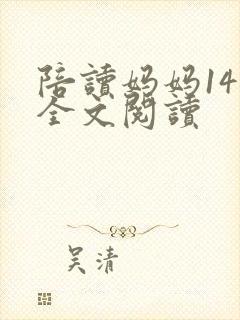 陪讀妈妈14
全文閱讀
吴清